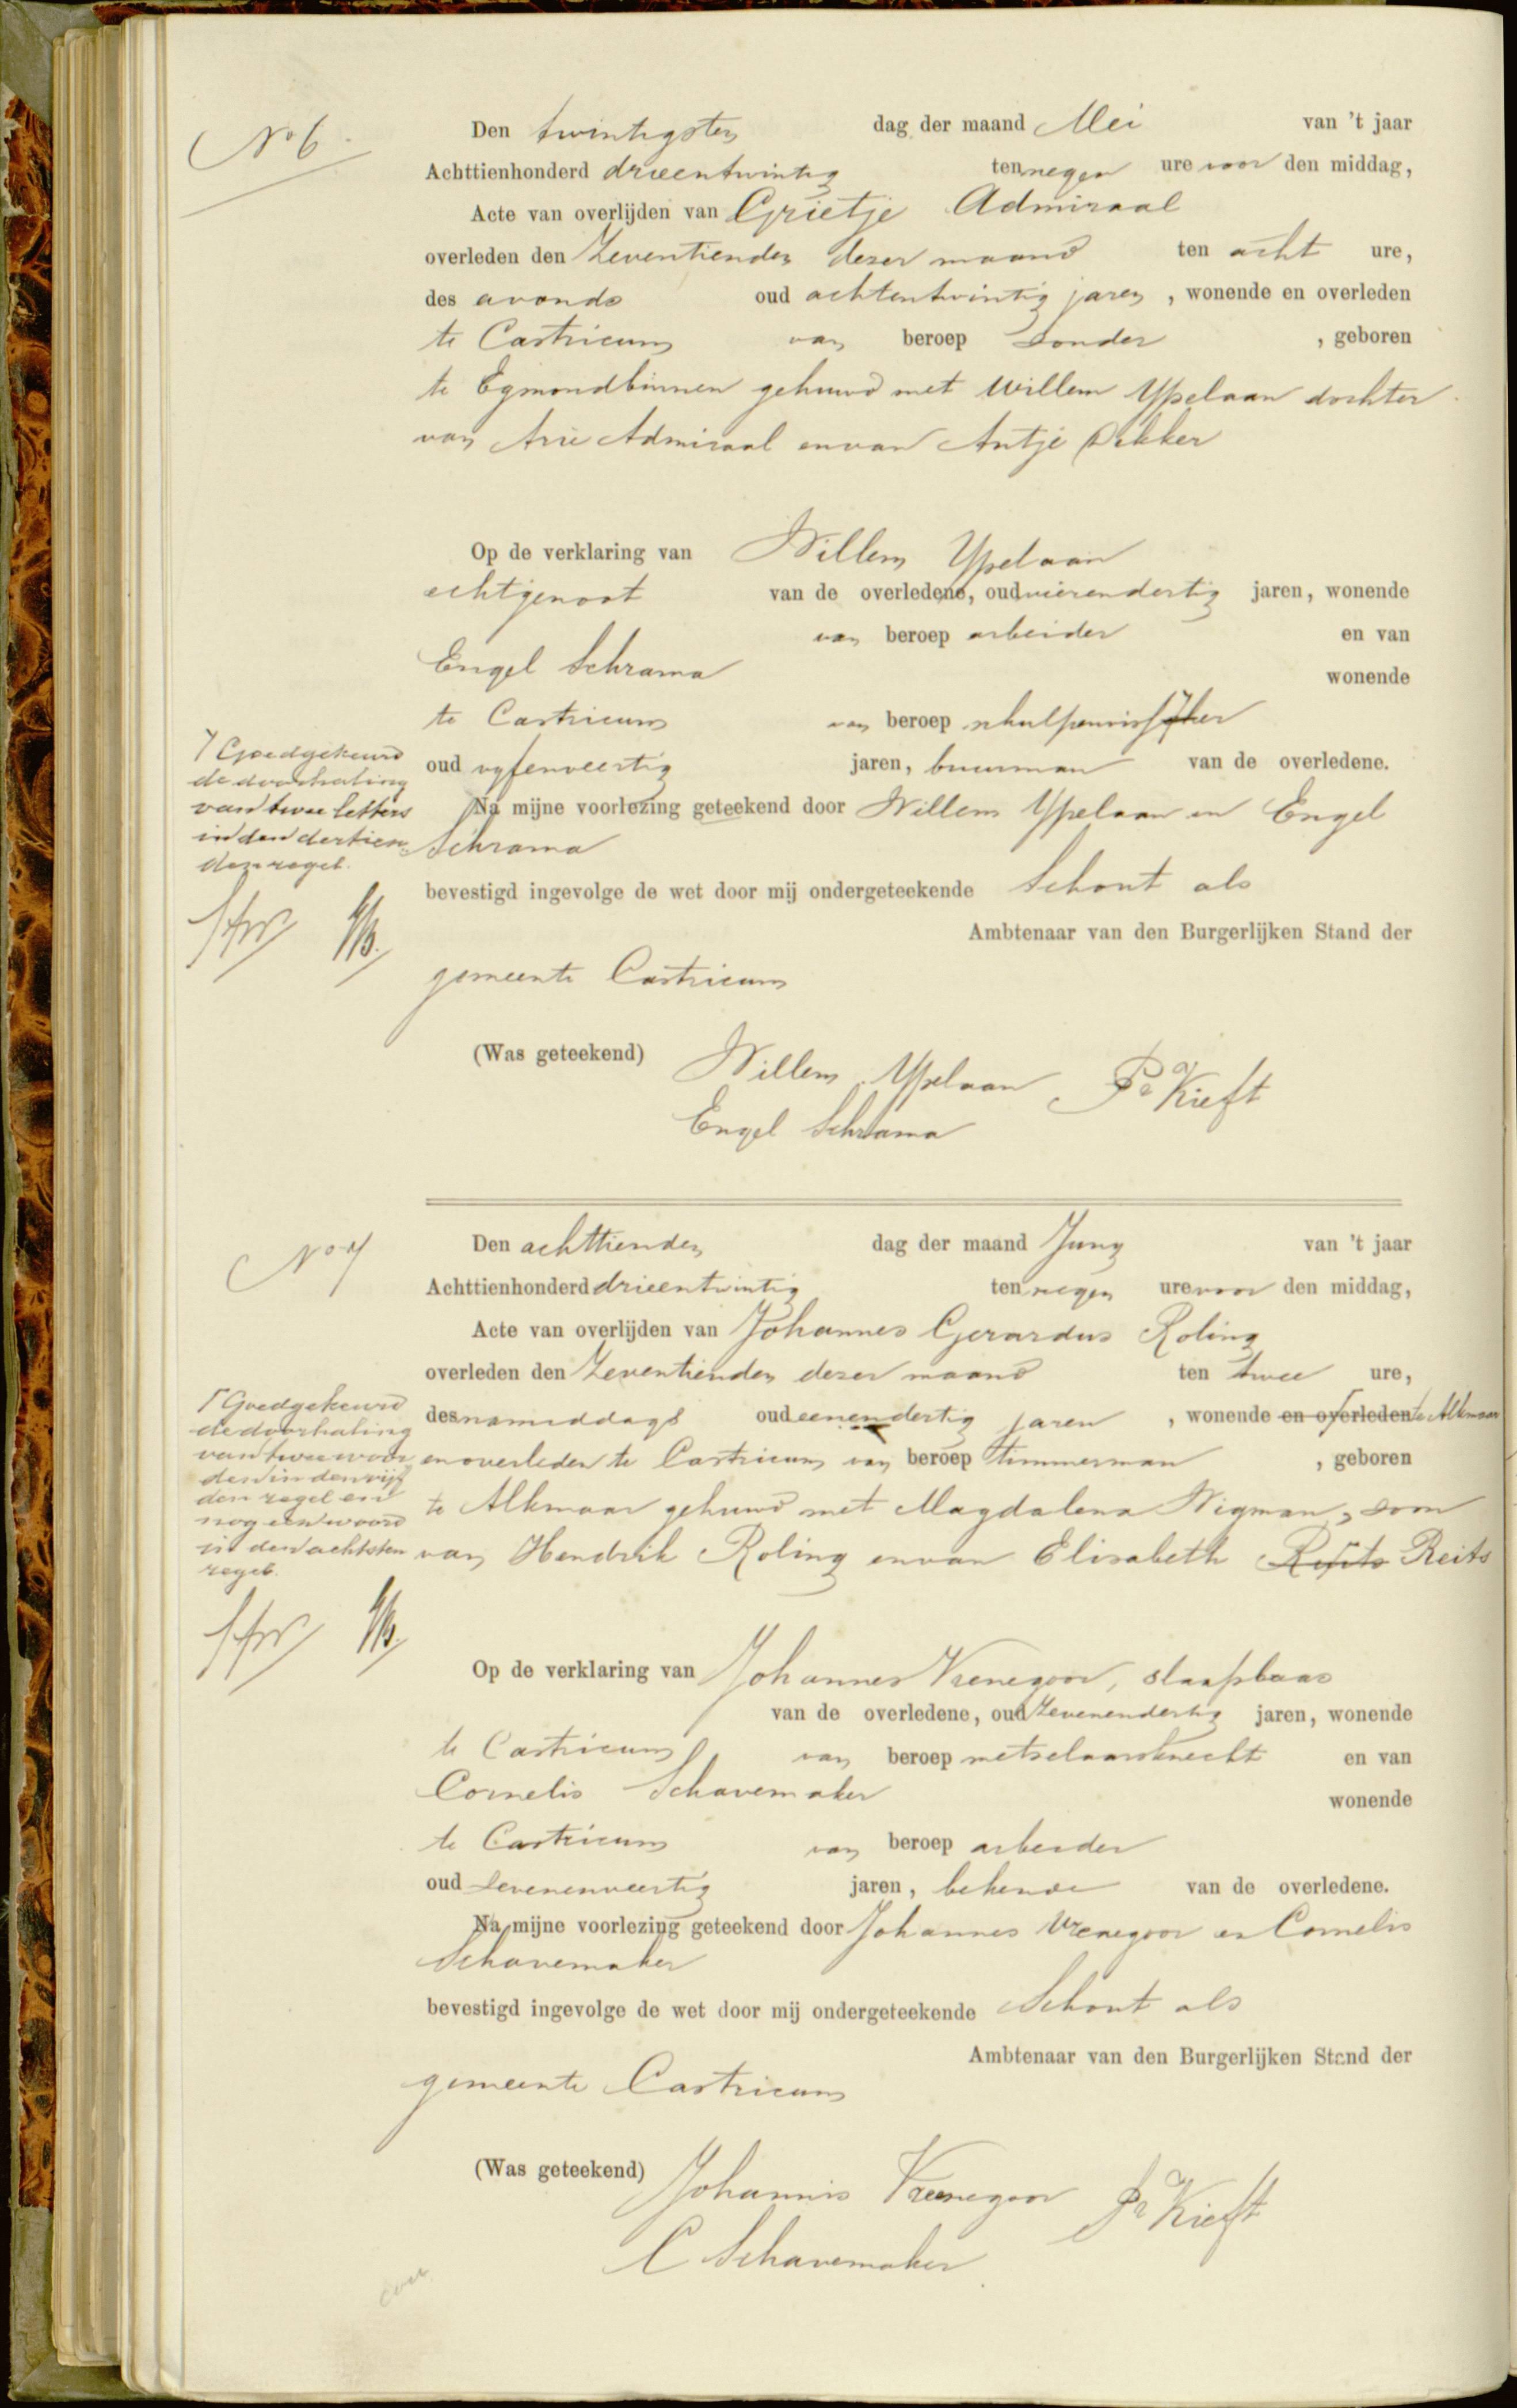 No 6.
Den twintigsten dag der maand Mei van 't jaar
Achttienhonderd drieentwintig ten negen ure voor den middag,
Acte van overlijden van Grietje Admiraal
overleden den Zeventienden dezer maand ten acht ure,
des avonds oud achtentwintig jaren, wonende en overleden
te Castricum van beroep zonder, geboren
te Egmondbinnen gehuwd met Willem Ypelaan dochter
van Arie Admiraal en van Antje Dekker
Op de verklaring van Willem Ypelaan
echtgenoot van de overledene, oud vierendertig jaren, wonende
van beroep arbeider en van
Engel Schrama wonende
te Castricum van beroep
oud vyfenveertig jaren, buurman van de overledene.
Na mijne voorlezing geteekend door Willem Ypelaan en Engel
Schrama
bevestigd ingevolge de wet door mij ondergeteekende Schout als
Ambtenaar van den Burgerlijken Stand der
gemeente Castricum
(Was geteekend) Willem Ypelaan Pr Kieft
Engel Schrama
Goedgekeurd
de doorhaling
van twee letters
in den dertien
den regel.
No 7
Den achttienden dag der maand Juny van 't jaar
Achttienhonderd drieentwintig ten negen ure voor den middag,
Acte van overlijden van Johannes Gerardus Roling
overleden den Zeventienden dezer maand ten twee ure,
des namiddags oud eenendertig jaren, wonende en overleden te Alkmaar
en overleden te Castricum van beroep timmerman, geboren
te Alkmaar gehuwd met Magdalena Nigman, zoon
van Hendrik Roling en van Elisabeth Reits
Op de verklaring van Johannes Vrenegoor, slaapbaas
van de overledene, oud zevenendertig jaren, wonende
te Castricum van beroep metselaarsknecht en van
Cornelis Schavemaker wonende
te Castricum van beroep arbeider
oud zevenenveertig jaren, bekende van de overledene.
Na mijne voorlezing geteekend door Johannes Vrenegoor en Cornelis
Schavemaker
bevestigd ingevolge de wet door mij ondergeteekende Schout als
Ambtenaar van den Burgerlijken Stand der
gemeente Castricum
(Was geteekend) Johannis Vreenegoor Pr Kieft
C Schavemaker
Goedgekeurd
de doorhaling
van twee woor
den in den vijf
den regel en
nog een woord
in den achtsten
regel.